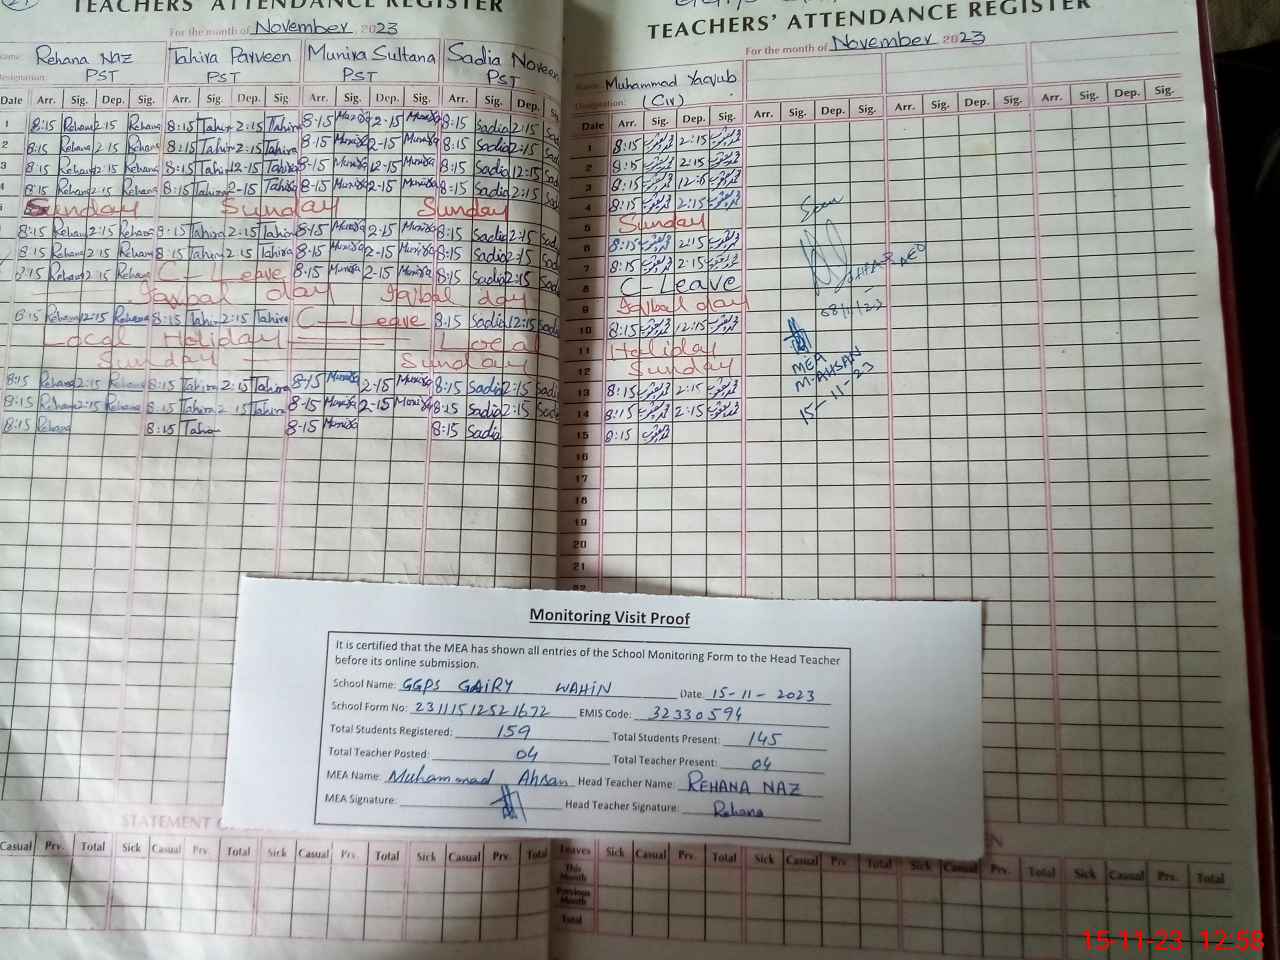 TEACHERS' ATTENDANCE REGISTER
For the month of November 2023
Name: Rehana Naz Tahira Parveen Munira Sultana Sadia Noveen
Designation: PST PST PST PST
Date Arr. Sig. Dep. Sig. Arr. Sig. Dep. Sig. Arr. Sig. Dep. Sig. Arr. Sig. Dep.
1 8:15 Rehana 2:15 Rehana 8:15 Tahira 2:15 Tahira 8-15 Munira 2-15 Munira 8:15 Sadia 2:15
2 8:15 Rehana 2:15 Rehana 8:15 Tahira 2:15 Tahira 8-15 Munira 2-15 Munira 8:15 Sadia 2:15
3 8:15 Rehana 12:15 Rehana 8:15 Tahira 12-15 Tahira 8-15 Munira 12-15 Munira 8:15 Sadia 12:15
4 8:15 Rehana 2:15 Rehana 8:15 Tahira 2-15 Tahira 8-15 Munira 2-15 Munira 8:15 Sadia 2:15
Sunday Sunday Sunday
8:15 Rehana 2:15 Rehana 8:15 Tahira 2:15 Tahira 8-15 Munira 2-15 Munira 8:15 Sadia 2:15
8:15 Rehana 2:15 Rehana 8:15 Tahira 2:15 Tahira 8-15 Munira 2-15 Munira 8:15 Sadia 2:15
8:15 Rehana 2:15 Rehana C-Leave 8-15 Munira 2-15 Munira 8:15 Sadia 2:15
Iqbal day Iqbal day
8:15 Rehana 12:15 Rehana 8:15 Tahira 12:15 Tahira C-Leave 8:15 Sadia 12:15
Local Holiday Local
Sunday Sunday
8:15 Rehana 2:15 Rehana 8:15 Tahira 2:15 Tahira 8-15 Munira 2-15 Munira 8:15 Sadia 2:15 Sadia
8:15 Rehana 2:15 Rehana 8:15 Tahira 2:15 Tahira 8-15 Munira 2-15 Munira 8:15 Sadia 2:15
8:15 Rehana 8:15 Tahira 8-15 Munira 8:15 Sadia
STATEMENT O
Casual Prv. Total Sick Casual Prv. Total Sick Casual Prv. Total Sick Casual Prv. Total
TEACHERS' ATTENDANCE REGISTER
For the month of November 2023
Name: Muhammad Yaqub
Designation: (Civ)
Date Arr. Sig. Dep. Sig. Arr. Sig. Dep. Sig. Arr. Sig. Dep. Sig. Arr. Sig. Dep. Sig.
1 8:15 2:15
2 8:15 2:15
3 8:15 12:15
4 8:15 2:15
5 Sunday
6 8:15 2:15
7 8:15 2:15
8 C-Leave
9 Iqbal day
10 8:15 12:15
11 Holiday
12 Sunday
13 8:15 2:15
14 8:15 2:15
15 8:15
16
17
18
19
20
21
22
Seen
MEA
M-AHSAN
15-11-23
Leaves Sick Casual Prv. Total Sick Casual Prv. Total Sick Casual Prv. Total Sick Casual Prv. Total
This Month
Previous Month
Total
Monitoring Visit Proof
It is certified that the MEA has shown all entries of the School Monitoring Form to the Head Teacher
before its online submission.
School Name: GGPS GAIRY WAHIN Date: 15-11-2023
School Form No: 23111512521672 EMIS Code: 32330594
Total Students Registered: 159 Total Students Present: 145
Total Teacher Posted: 04 Total Teacher Present: 04
MEA Name: Muhammad Ahsan Head Teacher Name: REHANA NAZ
MEA Signature: Head Teacher Signature: Rehana
15-11-23 12:58